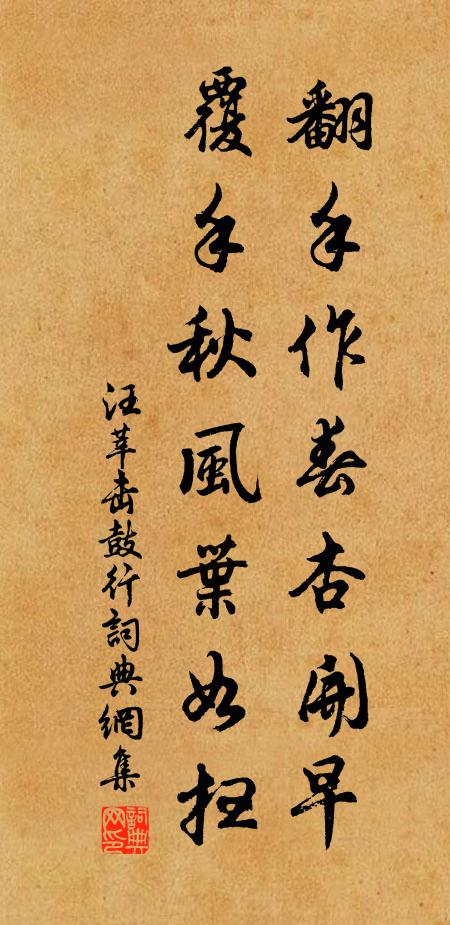 翻手作春杏開早
覆手秋風葉如扫
汪莘击鼓行詞典網集
詞典網印